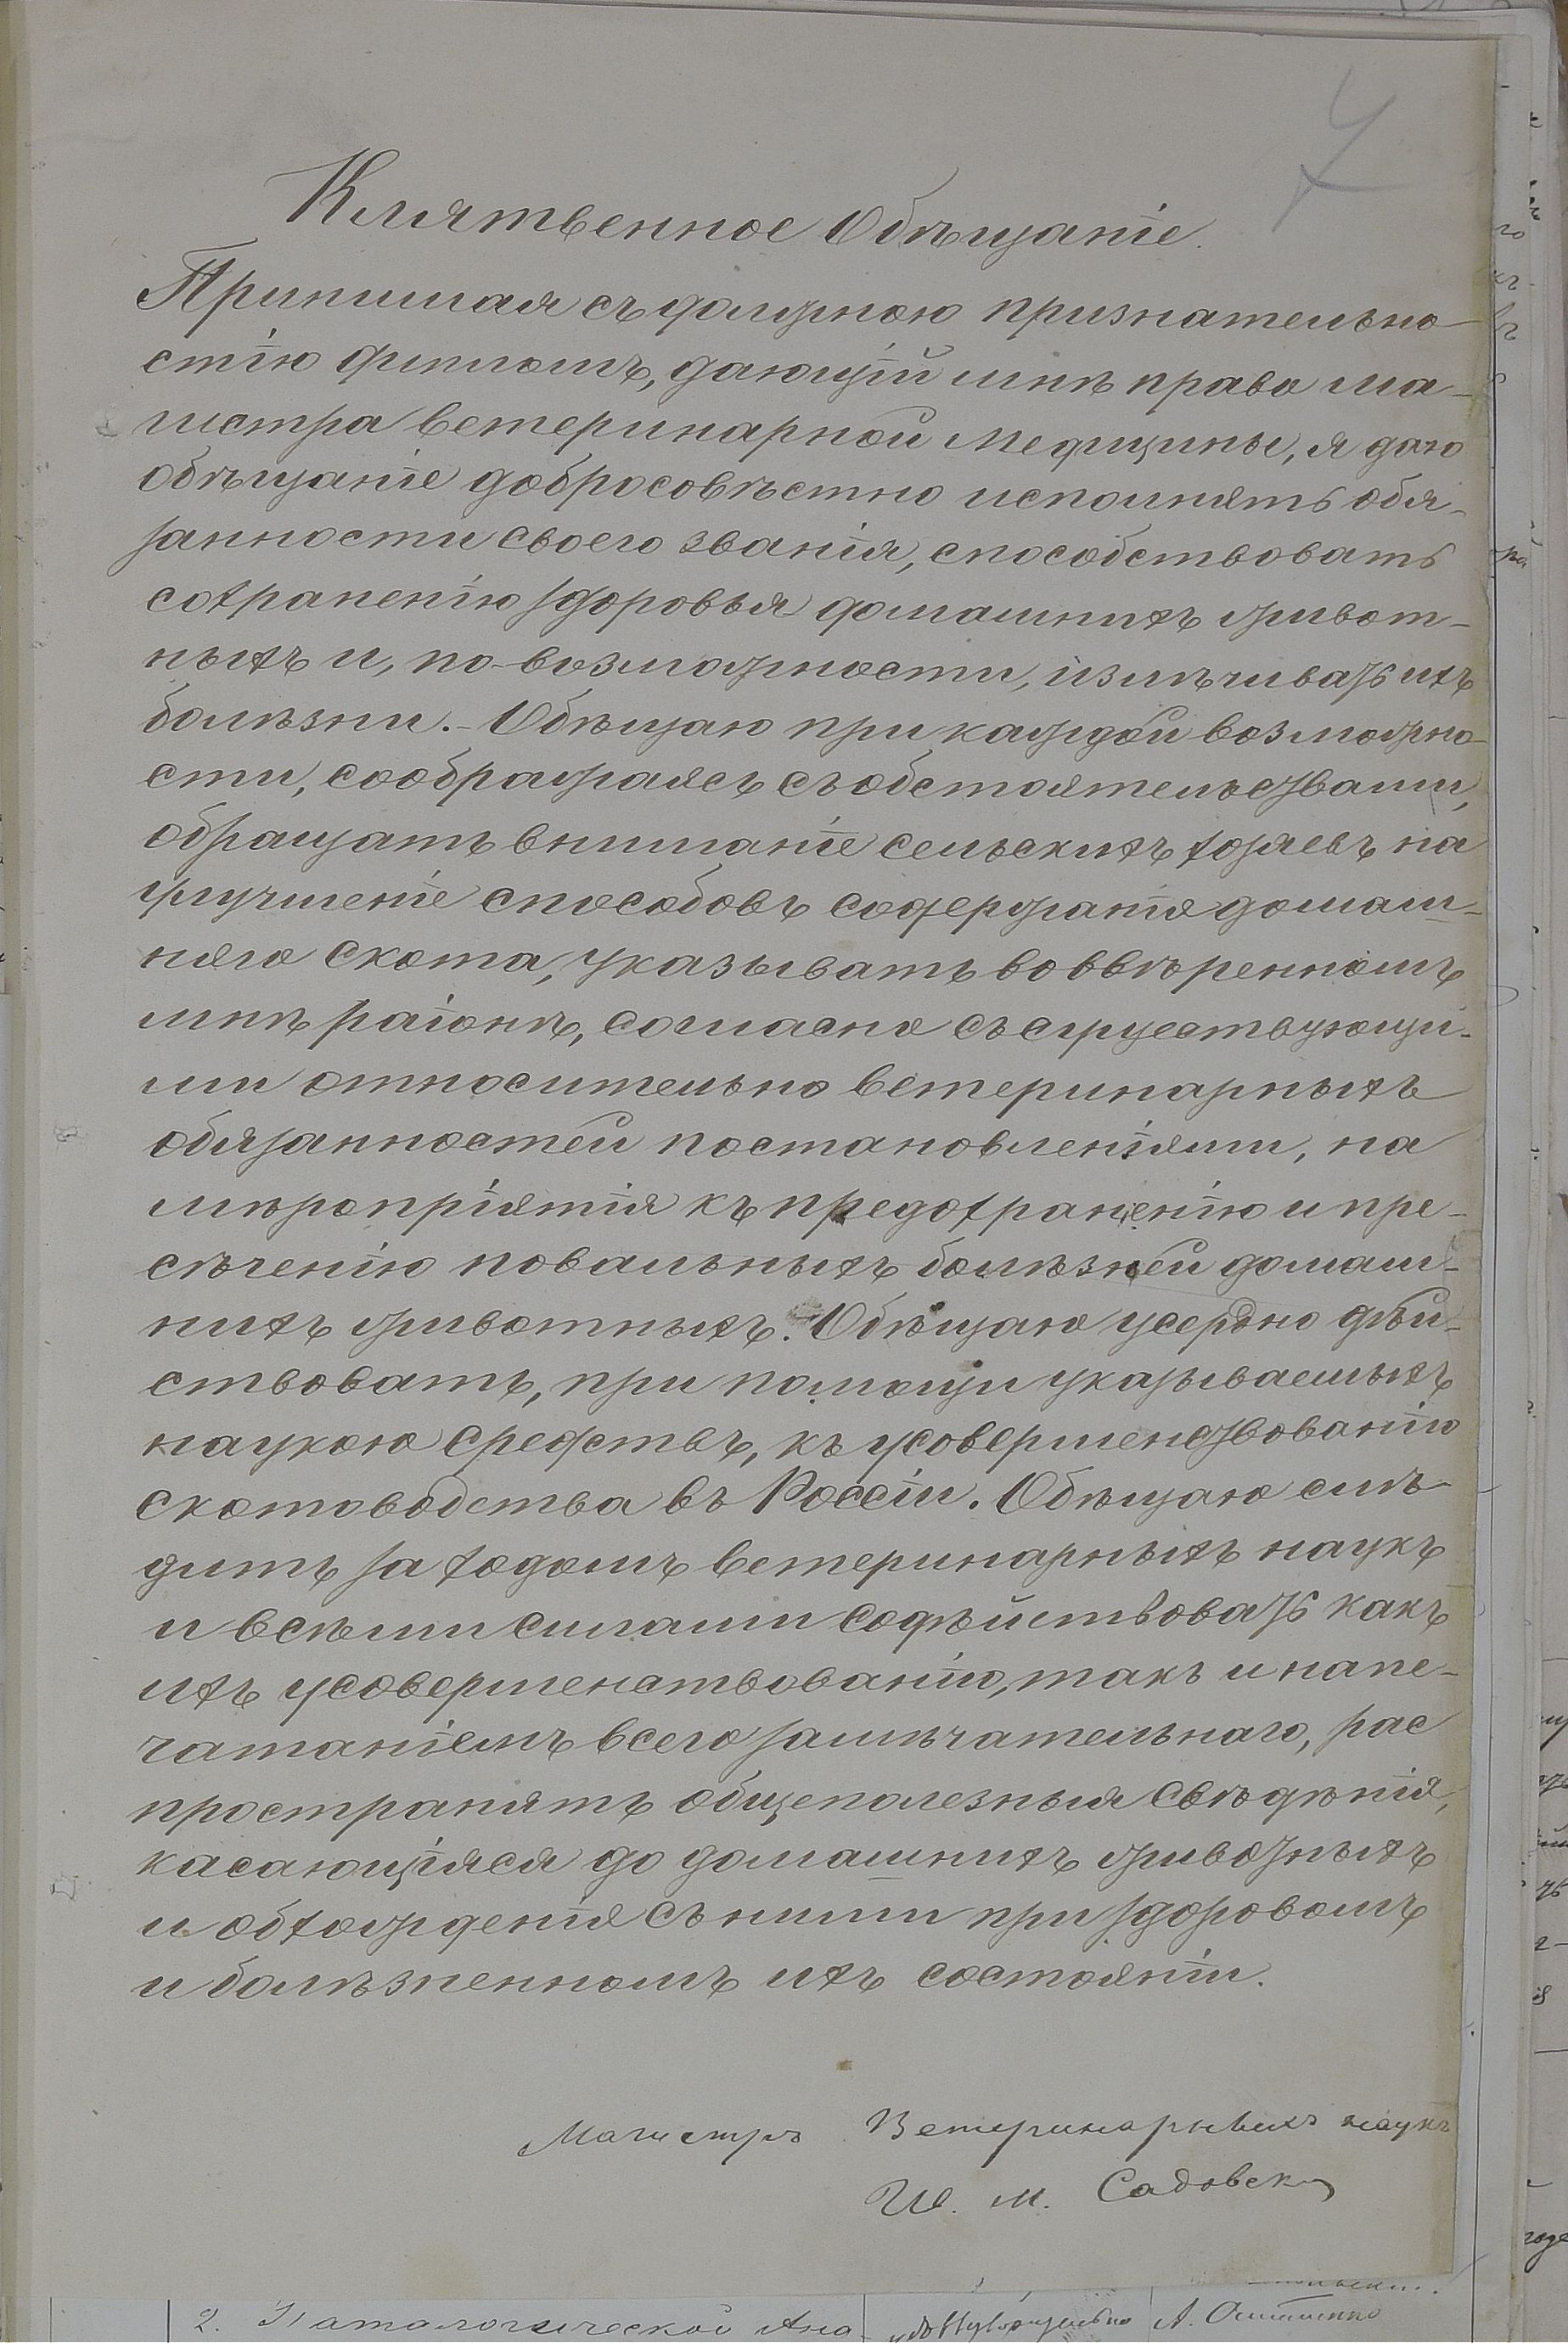 7
Клятвенное Обѣщаніе.
Принимая съ должною признательно-
стію дипломъ, дающій мнѣ право ма-
гистра ветеринарной медицины, я даю
обѣщаніе добросовѣстно исполнять обя-
занности своего званія, способствовать
сохраненію здоровья домашнихъ живот-
ныхъ и, по-возможности, излѣчивать ихъ
болѣзни.- Обѣщаю при каждой возможно-
сти, соображаясь съ обстоятельствами,
обращать вниманіе сельскихъ хозяевъ на
улучшеніе способовъ содержанія домаш-
няго скота, указывать во ввѣренномъ
мнѣ раіонѣ, согласно съ существующи-
ми относительно ветеринарныхъ
обязанностей постановленіями, на
мѣропріятія къ предохраненію и пре-
сѣченію повальныхъ болѣзней домаш-
нихъ животныхъ. Обѣщаю усердно дѣй-
ствовать, при помощи указываемыхъ
наукою средствъ, къ усовершенствованію
скотоводства въ Россіи. Обѣщаю слѣ-
дить за ходомъ ветеринарныхъ наукъ
и всѣми силами содѣйствовать какъ
ихъ усовершенствованію, такъ и напе-
чатаніемъ всего замѣчательнаго, рас
пространять общеполезныя свѣдѣнія,
касающіяся до домашнихъ животныхъ
и обхожденія съ ними при здоровомъ
и болѣзненномъ ихъ состояніи.
Магистръ Ветеринарныхъ наукъ
И. М. Садовскій
2. Патологической Ана-